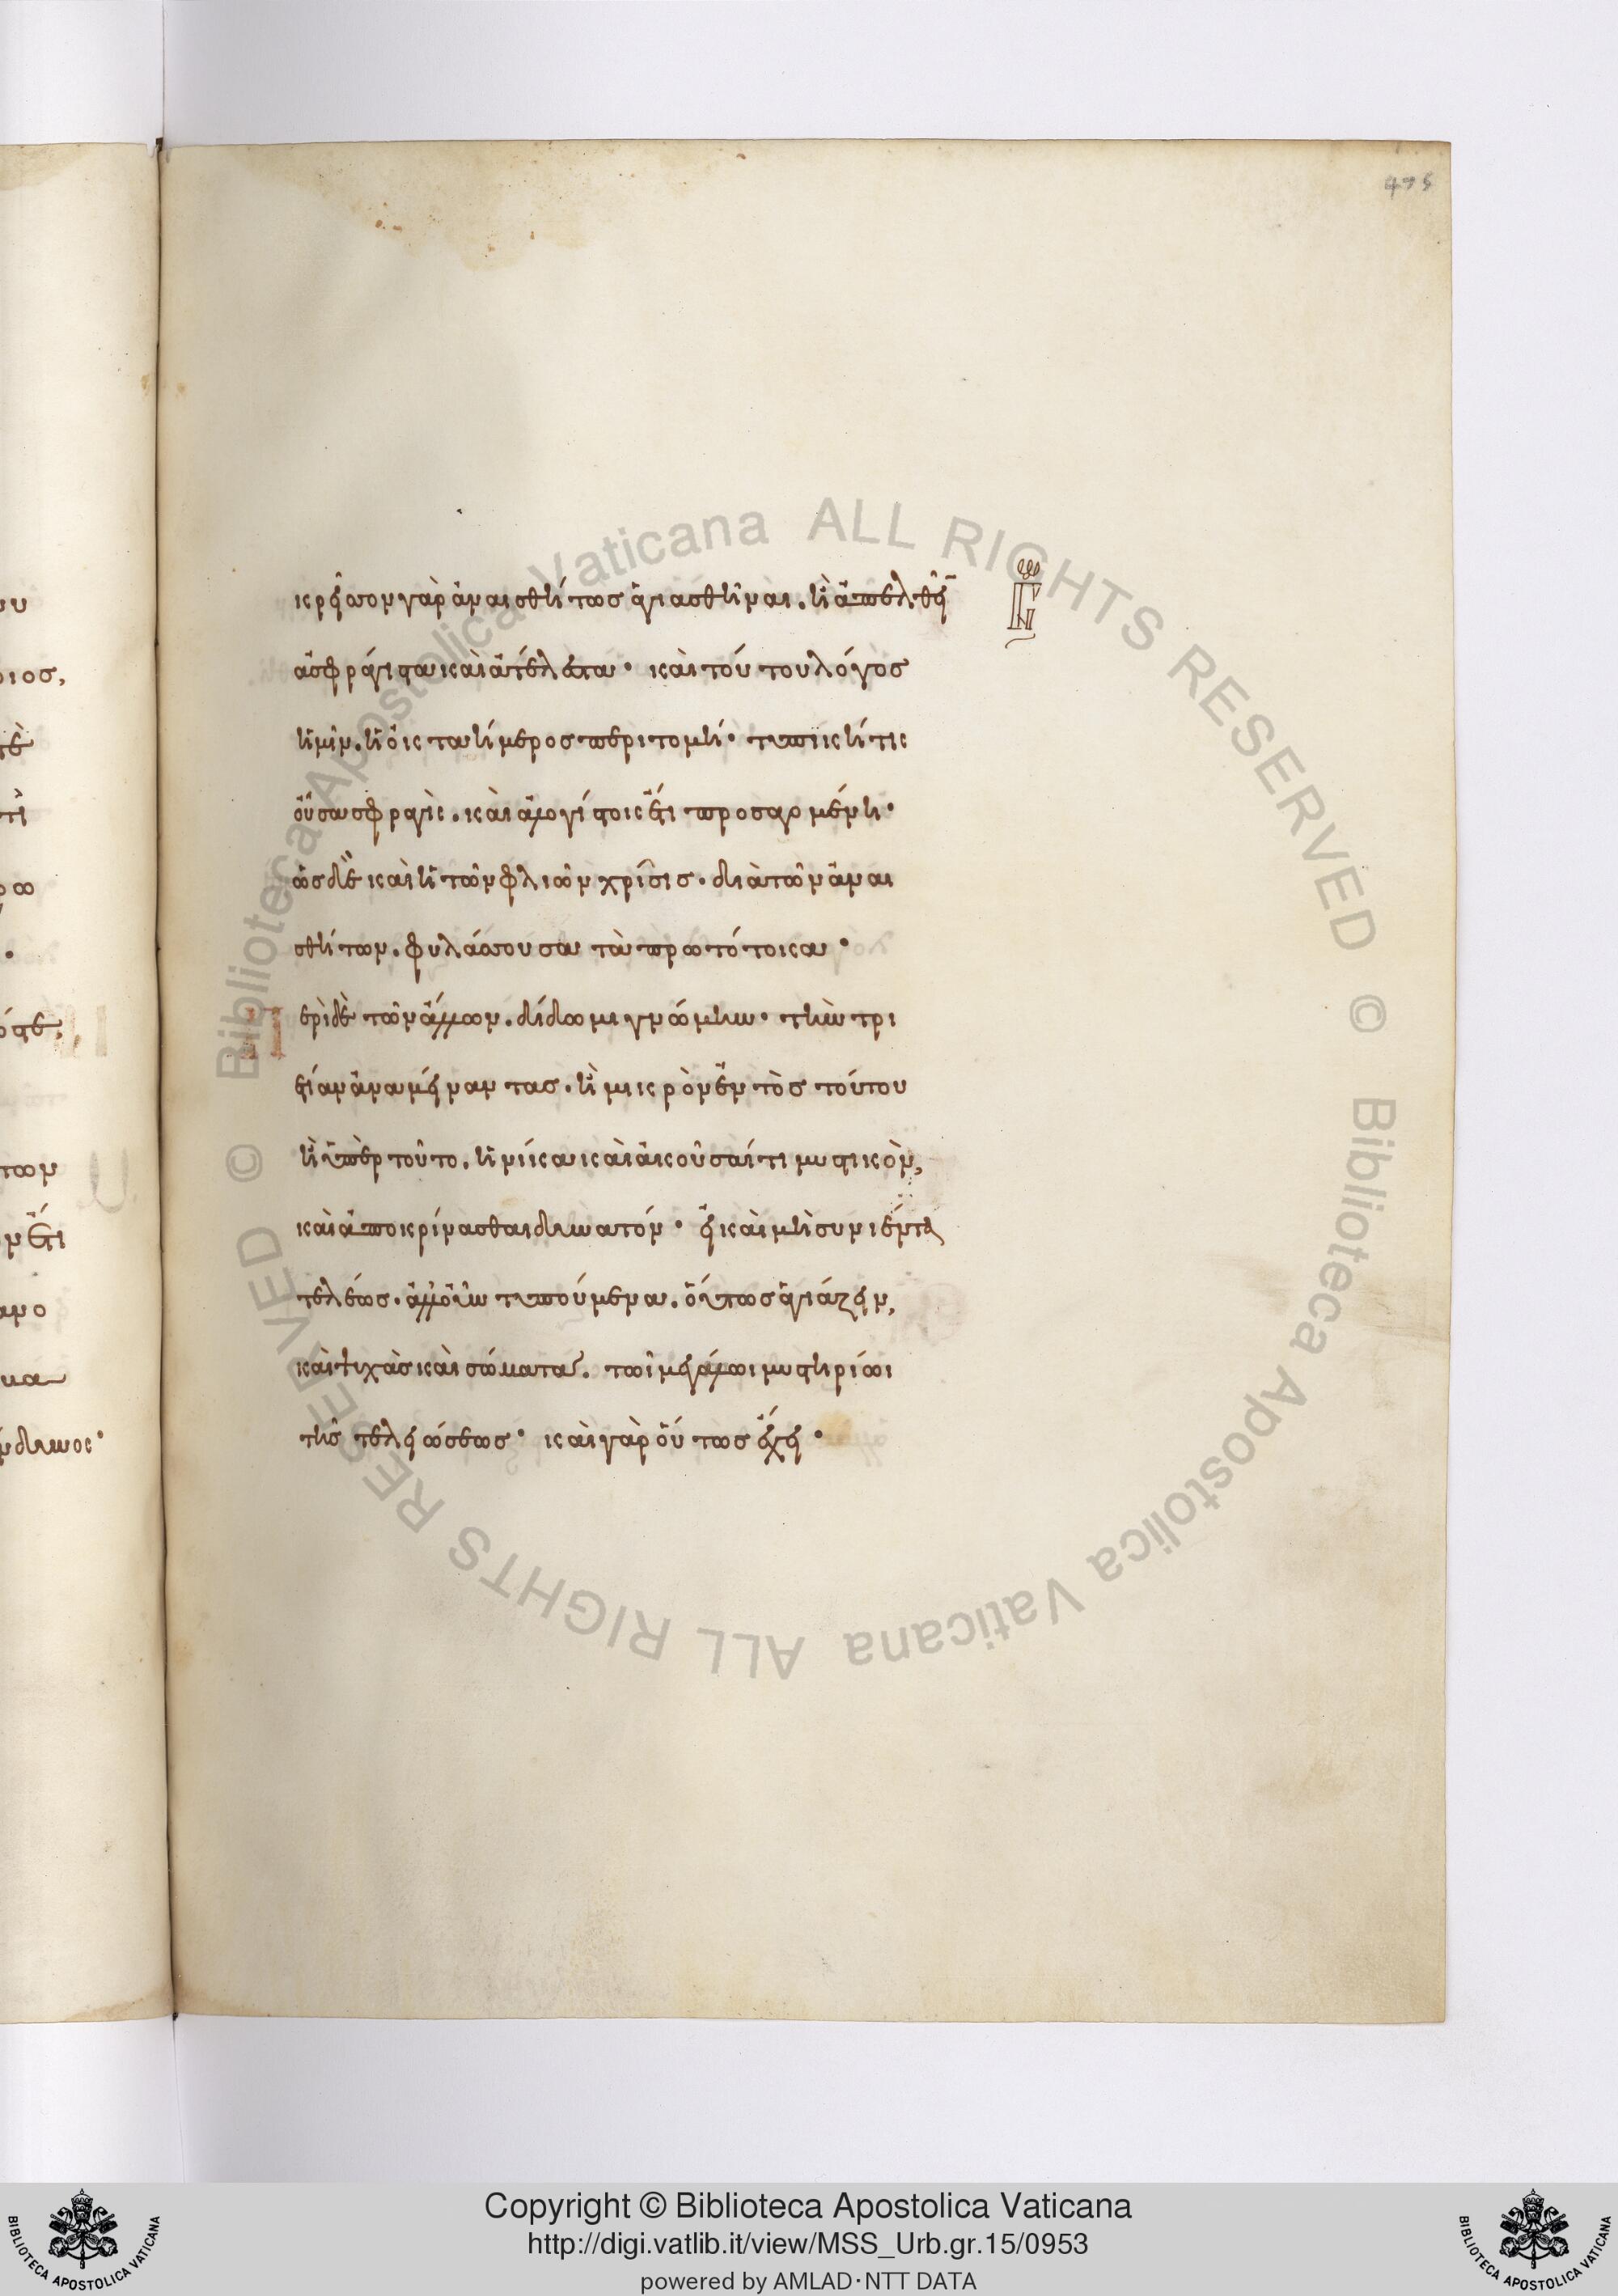 475
κρεῖττον γὰρ ἀναισθήτως ἁγιασθῆναι. ἢ ἀπελθεῖν
ἀσφράγιστα καὶ ἀτέλεστα· καὶ τούτου λόγος
ἡμῖν. ἡ ὀκταήμερος περιτομή· τυπική τις
οὖσα σφραγίς. καὶ ἀλογίστοις ἔτι προσαγομένη·
ὡς δὲ καὶ ἡ τῶν φλιῶν χρῖσις. διὰ τῶν ἀναι
σθήτων. φυλάττουσα τὰ πρωτότοκα·
Περὶ δὲ τῶν ἄλλων. δίδωμι γνώμην· τὴν τρι
ετίαν ἀναμείναντας. ἢ μικρὸν ἐντὸς τούτου
ἢ ὑπὲρ τοῦτο. ἡνίκα καὶ ἀκοῦσαί τι μυστικὸν,
καὶ ἀποκρίνασθαι δυνατόν· εἰ καὶ μὴ συνιέντα
τελέως. ἀλλ' οὖν τυπούμενα. οὕτως ἁγιάζειν,
καὶ ψυχὰς καὶ σώματα. τῶι μεγάλωι μυστηρίωι
τῆς τελειώσεως· καὶ γὰρ οὕτως ἔχει·
υ
ιος,
τὲ
τὶ
ρω
·
όστε,
των
ν ἔτι
ανο
μα
νδυνος·
Copyright © Biblioteca Apostolica Vaticana
http://digi.vatlib.it/view/MSS_Urb.gr.15/0953
powered by AMLAD·NTT DATA
BIBLIOTECA APOSTOLICA VATICANA
BIBLIOTECA APOSTOLICA VATICANA
© Biblioteca Apostolica Vaticana ALL RIGHTS RESERVED © Biblioteca Apostolica Vaticana ALL RIGHTS RESERVED